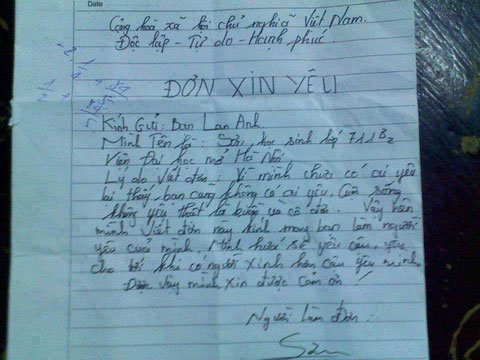 Date
Cộng hoà xã hội chủ nghĩa Việt Nam.
Độc lập - Tự do - Hạnh phúc.
ĐƠN XIN YÊU
Kính Gửi: Bạn Lan Anh
Mình Tên là: Sơn, học sinh lớp 711B2
Viện Đại học mở Hà Nội
Lý do viết đơn: Vì mình chưa có ai yêu
lại thấy bạn cũng không có ai yêu, Cuộc sống
không yêu thật là buồn và cô đơn. Vậy nên
mình viết đơn này kính mong bạn làm người
yêu của mình. Mình hứa sẽ yêu cậu, yêu
cho tới khi có người xinh hơn cậu yêu mình
Được vậy mình xin được cảm ơn!
Người Làm Đơn:
Sơn